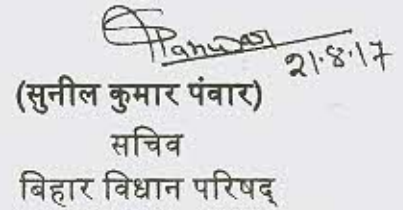 Panwar
21.8.17
(सुनील कुमार पंवार)
सचिव
बिहार विधान परिषद्